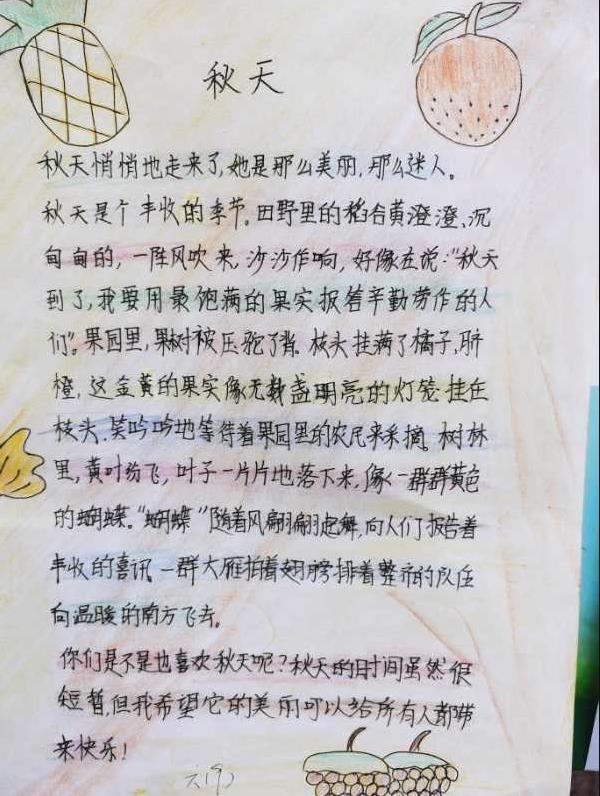 秋天
秋天悄悄地走来了,她是那么美丽,那么迷人。
秋天是个丰收的季节。田野里的稻谷黄澄澄、沉
甸甸的,一阵风吹来,沙沙作响,好像在说:“秋天
到了,我要用最饱满的果实报答辛勤劳作的人
们”。果园里,果树被压驼了背。枝头挂满了橘子,脐
橙,这金黄的果实像无数盏明亮的灯笼挂在
枝头,笑吟吟地等待着果园里的农民来采摘。树林
里,黄叶纷飞,叶子一片片地落下来,像一群群黄色
的蝴蝶。“蝴蝶”随着风翩翩起舞,向人们报告着
丰收的喜讯。一群大雁拍着翅膀排着整齐的队伍
向温暖的南方飞去。
你们是不是也喜欢秋天呢?秋天的时间虽然很
短暂,但我希望它的美丽可以给所有人都带
来快乐!
六(9)